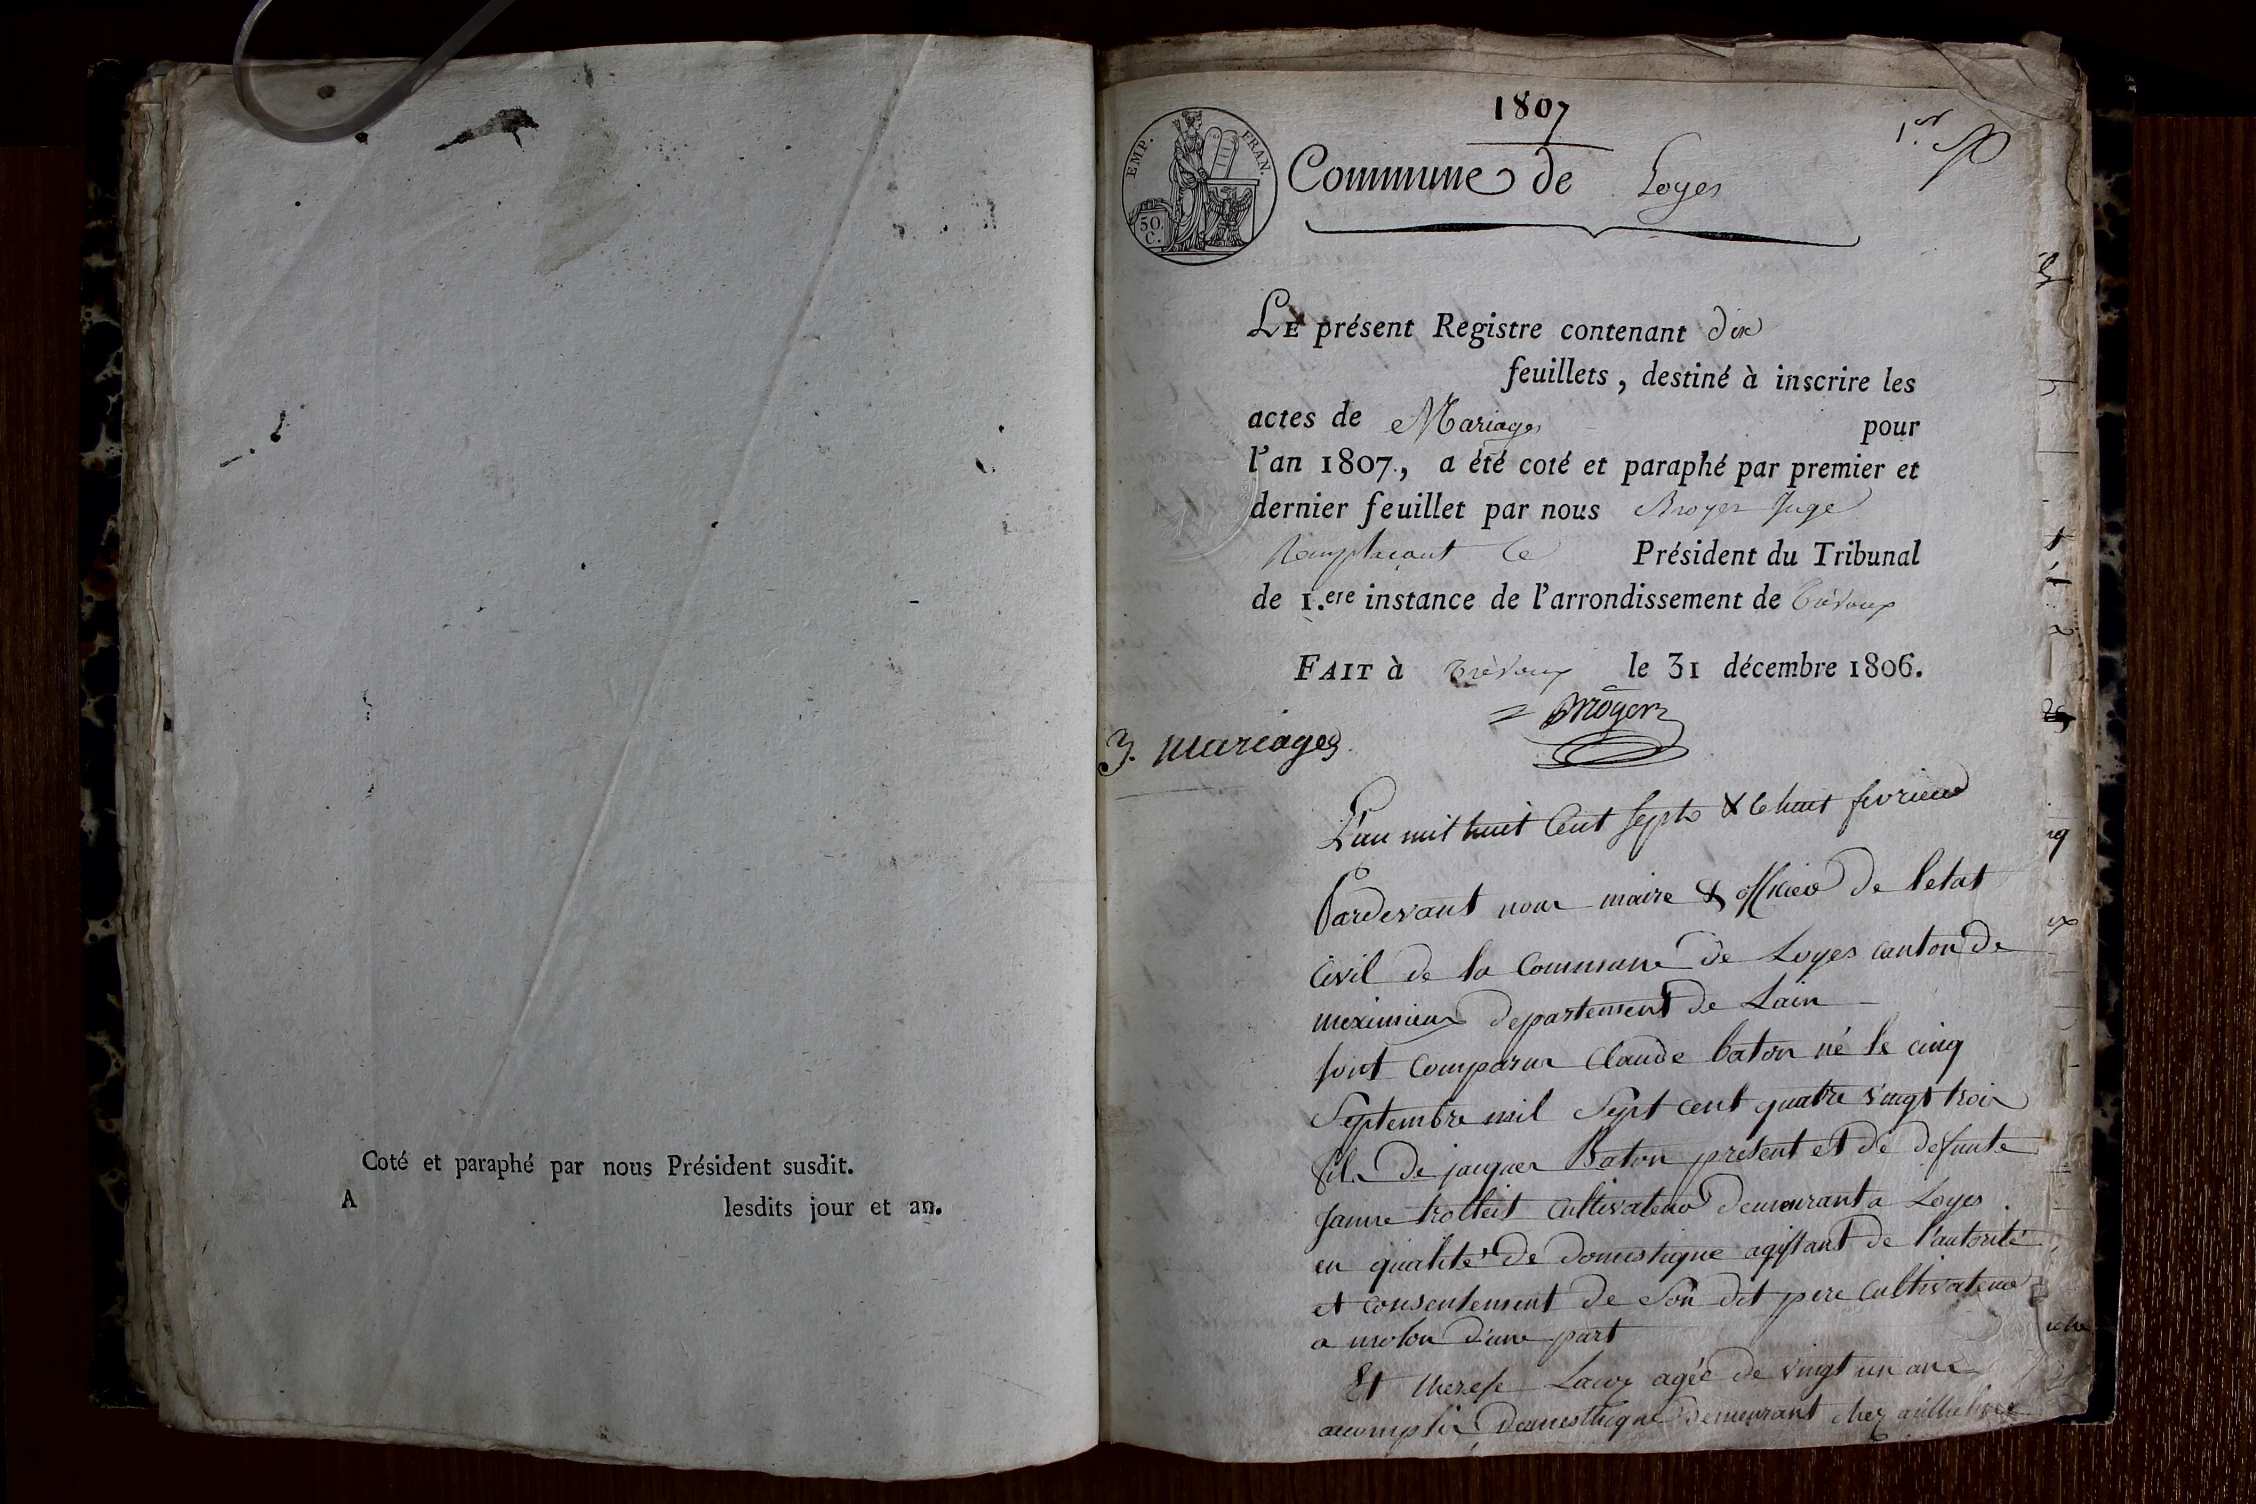 Coté et paraphé par nous Président susdit.
A lesdits jour et an.
1807
1.er
EMP. FRAN.
50 C.
Commune de Loyes
LE présent Registre contenant dix
feuillets, destiné à inscrire les
actes de Mariages pour
l'an 1807., a été coté et paraphé par premier et
dernier feuillet par nous Broyer Juge
Remplacant le Président du Tribunal
de 1.ere instance de l'arrondissement de Trévoux
FAIT à Trévoux le 31 décembre 1806.
Broyer
3. mariages
L'an mil huit Cent Sept & le huit fevrier
Pardevant nous maire & officier de l'etat
Civil de la Commune de Loyes canton de
meximieux departement de Lain
sont Comparus Claude baton né le cinq
Septembre mil Sept cent quatre vingt trois
fils de jacques Baton present et de defunte
jeanne trolliet Cultivateur demeurant a Loyes
en qualité de domestique agissant de l'autorité
et consentement de Son dit pere cultivateur
a molon d'une part
Et therese agée de vingt un ans
accomplis Domesthique Demeurant chez